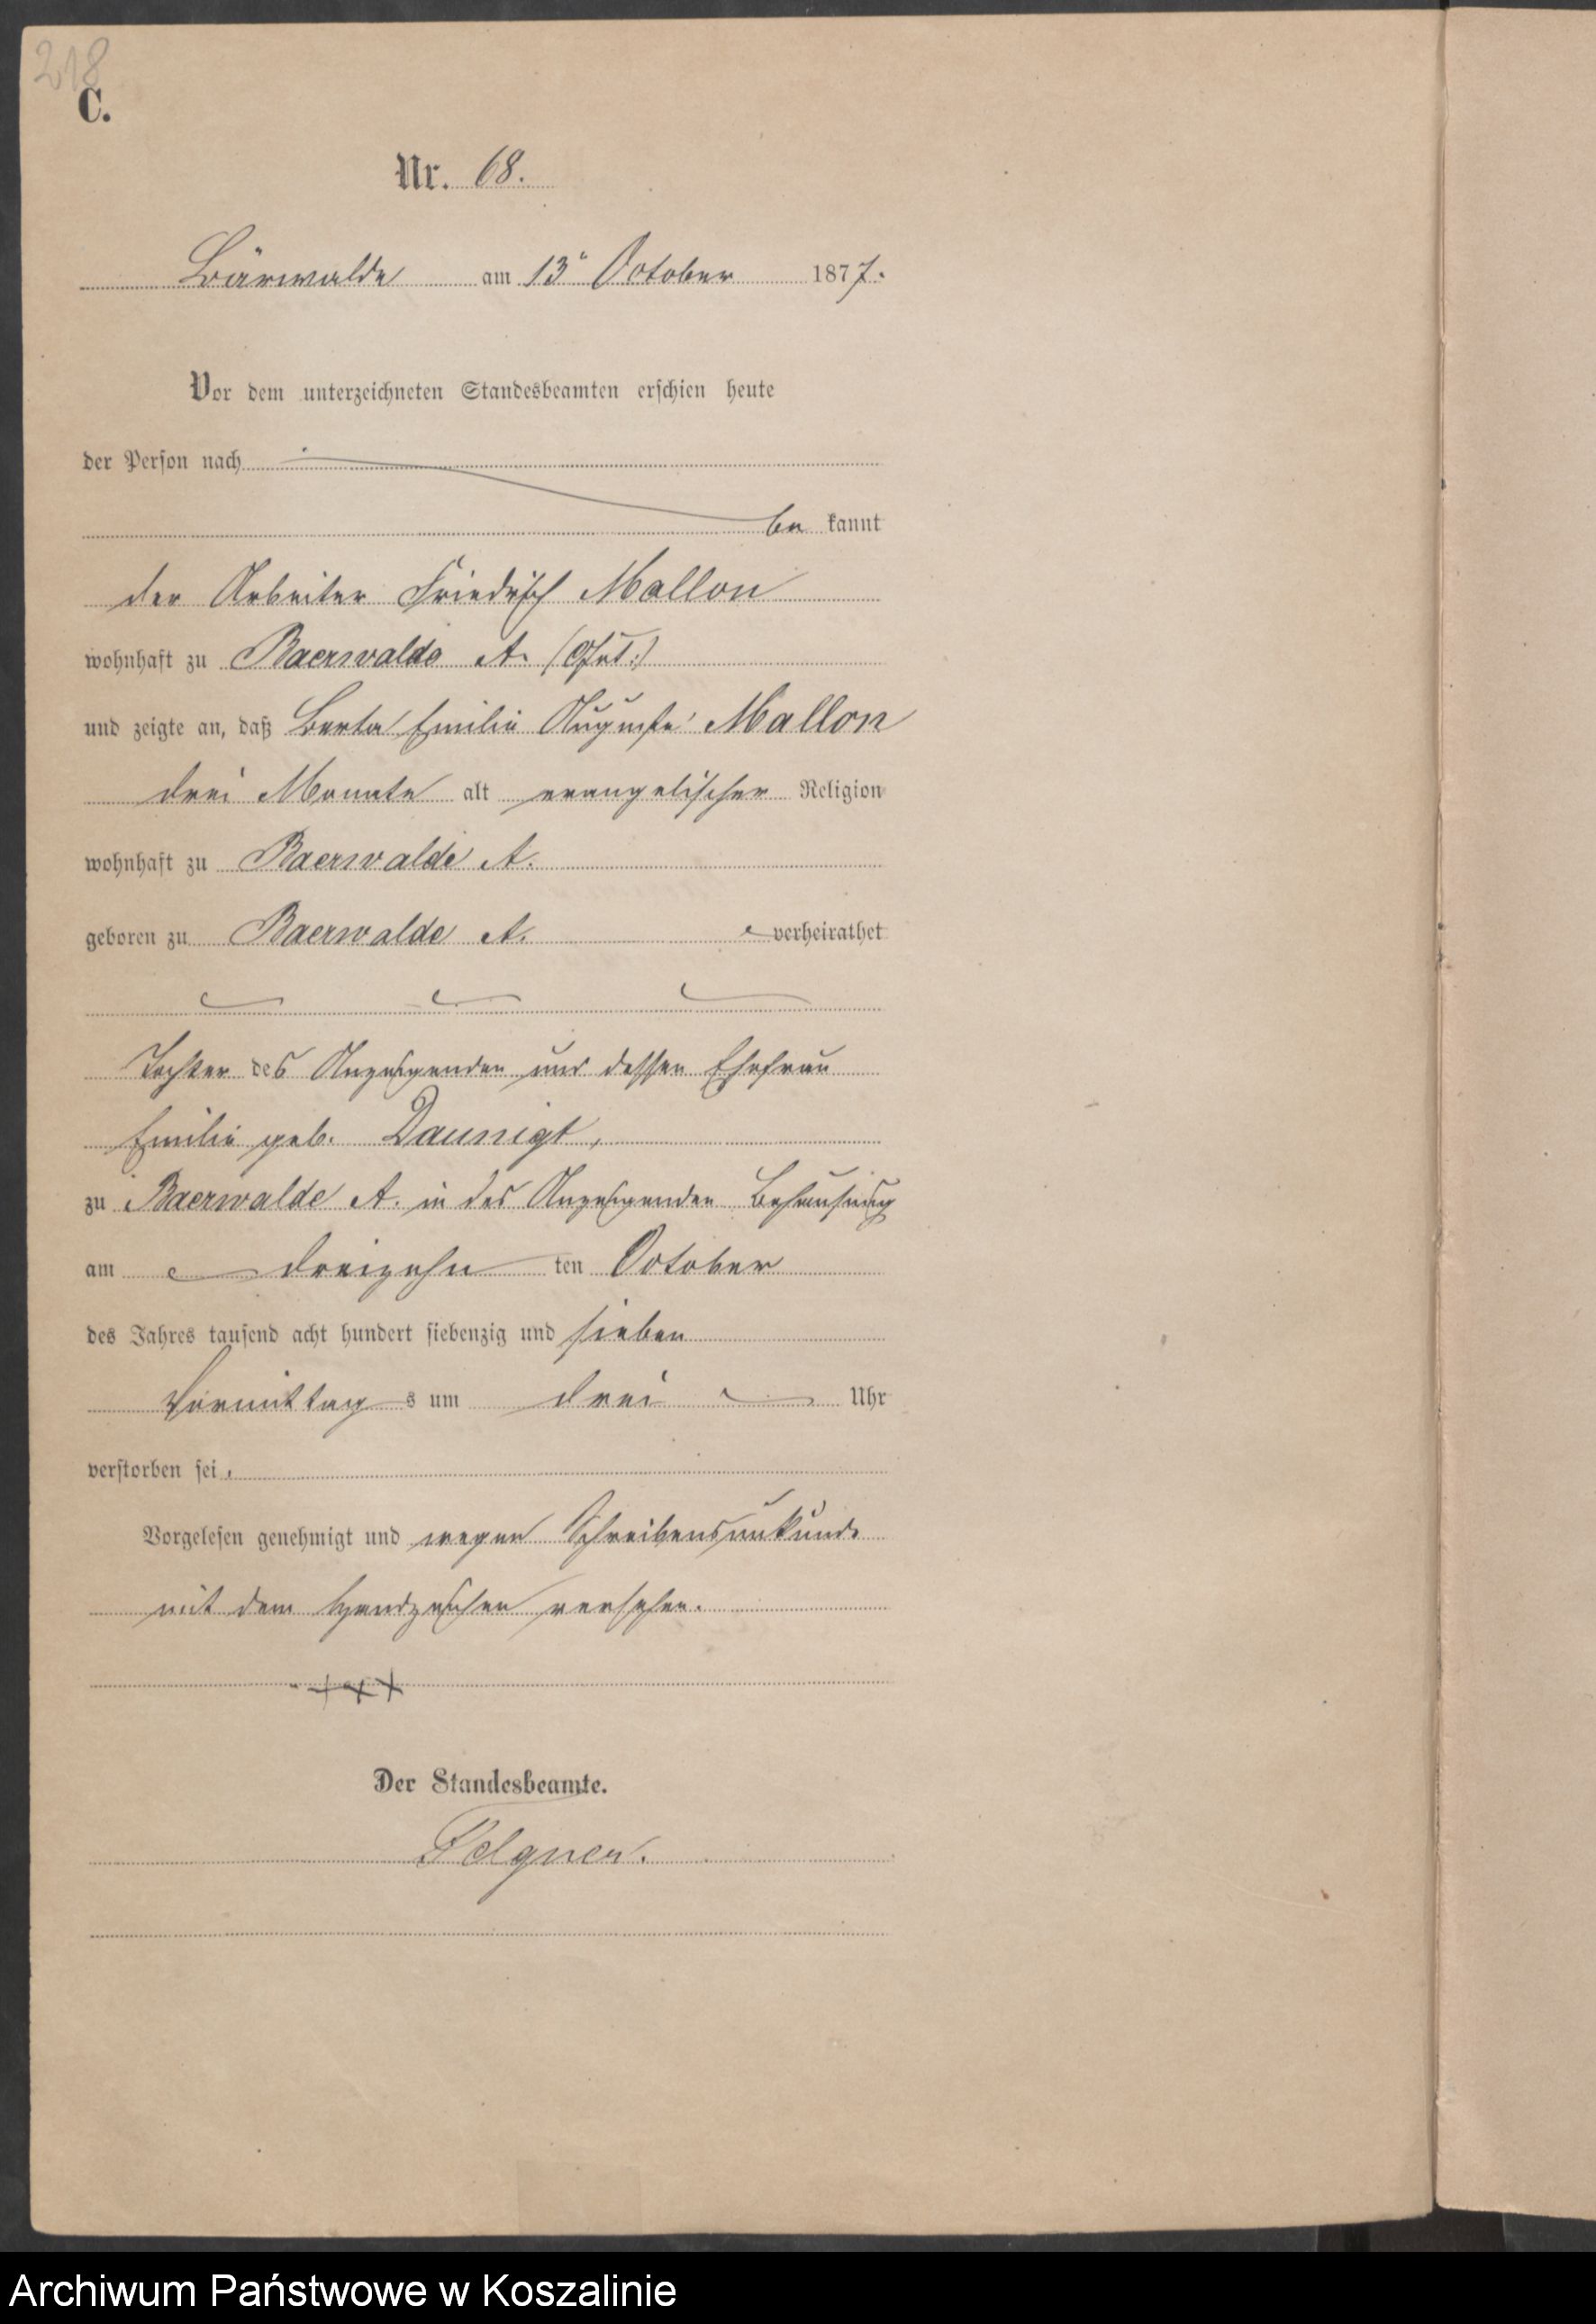 218
C.
Nr. 68.
Bärwalde am 13ᵗ October 1877.
Vor dem unterzeichneten Standesbeamten erschien heute
der Person nach
be kannt
der Arbeiter Friedrich Mallon
wohnhaft zu Baerwalde A.
und zeigte an, daß Berta Emilie Auguste Mallon
drei Monate alt evangelischer Religion
wohnhaft zu Baerwalde A.
geboren zu Baerwalde A. verheirathet
Tochter des Anzeigenden und dessen Ehefrau
Emilie geb. Daunigt,
zu Baerwalde A. in des Anzeigenden Behausung
am dreizehn ten October
des Jahres tausend acht hundert siebenzig und sieben
Vormittag s um drei Uhr
verstorben sei.
Vorgelesen genehmigt und wegen Schreibensunkunde
mit dem Handzeichen versehen.
+++
Der Standesbeamte.
Felgner.
Archiwum Państwowe w Koszalinie